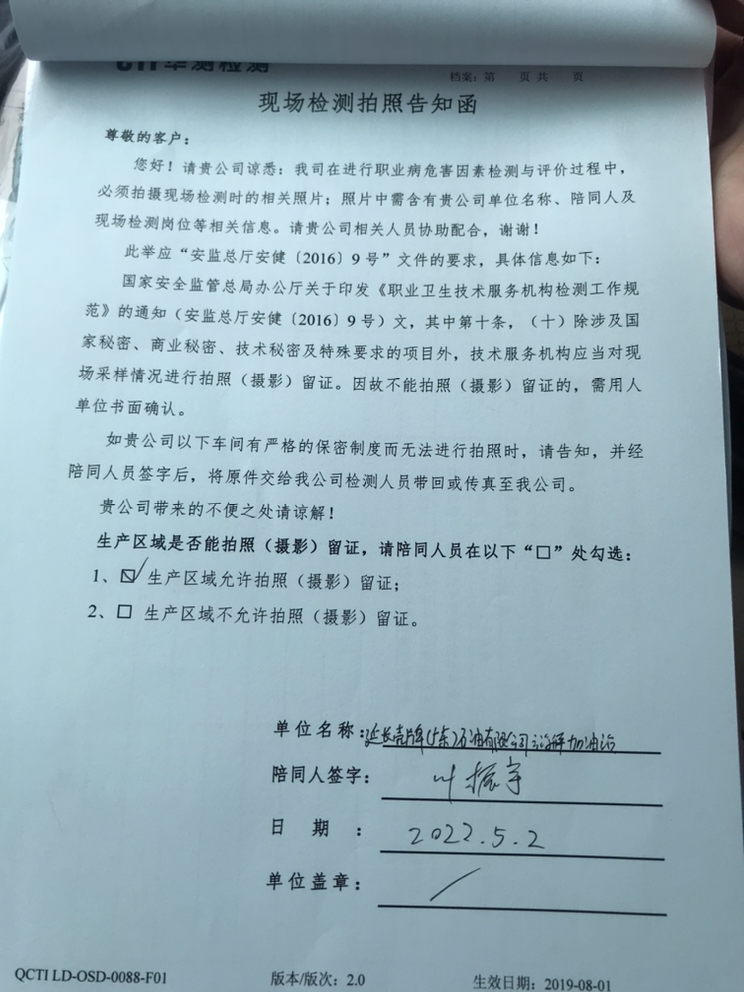 CTI华测检测
档案：第 页 共 页
现场检测拍照告知函
尊敬的客户：
您好！请贵公司谅悉：我司在进行职业病危害因素检测与评价过程中，
必须拍摄现场检测时的相关照片；照片中需含有贵公司单位名称、陪同人及
现场检测岗位等相关信息。请贵公司相关人员协助配合，谢谢！
此举应“安监总厅安健〔2016〕9号”文件的要求，具体信息如下：
国家安全监管总局办公厅关于印发《职业卫生技术服务机构检测工作规
范》的通知（安监总厅安健〔2016〕9号）文，其中第十条，（十）除涉及国
家秘密、商业秘密、技术秘密及特殊要求的项目外，技术服务机构应当对现
场采样情况进行拍照（摄影）留证。因故不能拍照（摄影）留证的，需用人
单位书面确认。
如贵公司以下车间有严格的保密制度而无法进行拍照时，请告知，并经
陪同人员签字后，将原件交给我公司检测人员带回或传真至我公司。
贵公司带来的不便之处请谅解！
生产区域是否能拍照（摄影）留证，请陪同人员在以下“□”处勾选：
1、☑ 生产区域允许拍照（摄影）留证；
2、□ 生产区域不允许拍照（摄影）留证。
单位名称：延长壳牌（广东）石油有限公司 加油站
陪同人签字：叶振宇
日期：2022.5.2
单位盖章：/
QCTI LD-OSD-0088-F01 版本/版次：2.0 生效日期：2019-08-01